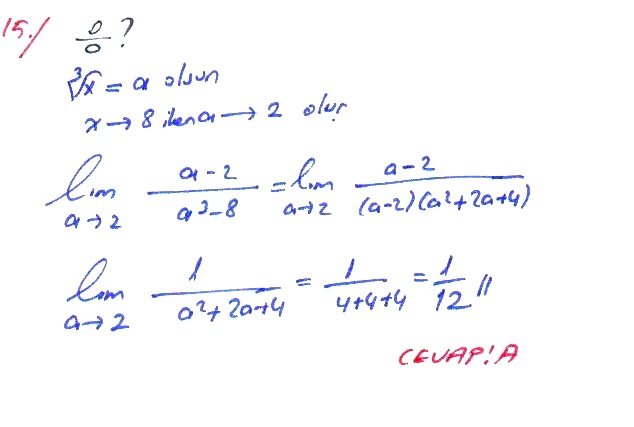 15./ 0/0 ?
∛x = a olsun
x → 8 iken a → 2 olur
lim a→2 (a-2)/(a³-8) = lim a→2 (a-2)/((a-2)(a²+2a+4))
lim a→2 1/(a²+2a+4) = 1/(4+4+4) = 1/12 //
CEVAP: A